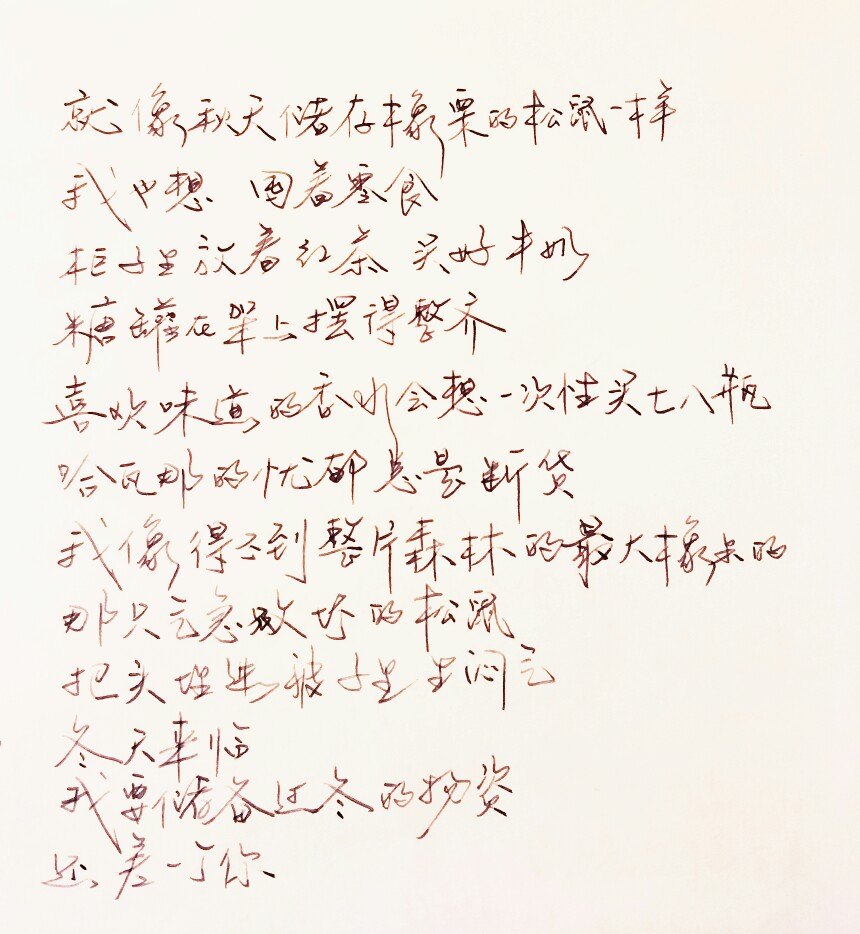 就像秋天储存橡栗的松鼠一样
我也想 囤着零食
柜子里放着红茶 买好牛奶
糖罐在架上摆得整齐
喜欢味道的香水会想一次性买七八瓶
哈瓦那的忧郁总是断货
我像得不到整片森林的最大橡果的
那只气急败坏的松鼠
把头埋进被子里生闷气
冬天来临
我要储备过冬的物资
还差一个你、